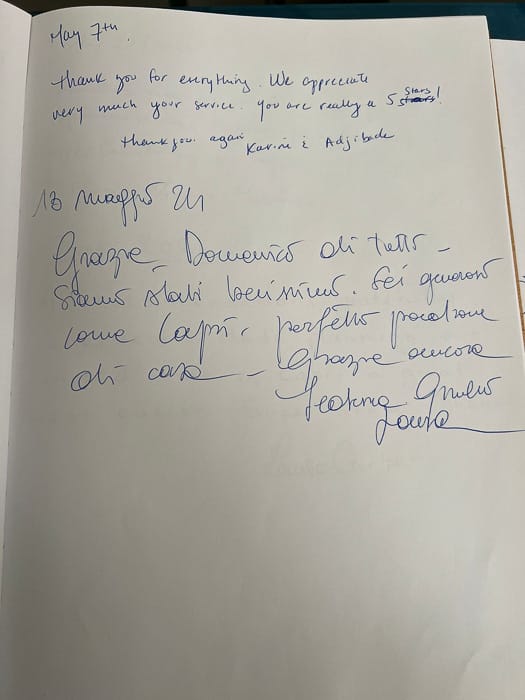 May 7th.
Thank you for everything. We appreciate
very much your service. You are really a 5 stars!
Thank you again Karine & Adjibade
13 Maggio 24
Grazie Domenico di tutto -
Siamo stati benissimo. Sei generoso
come Capri, perfetto padrone
di casa - Grazie ancora